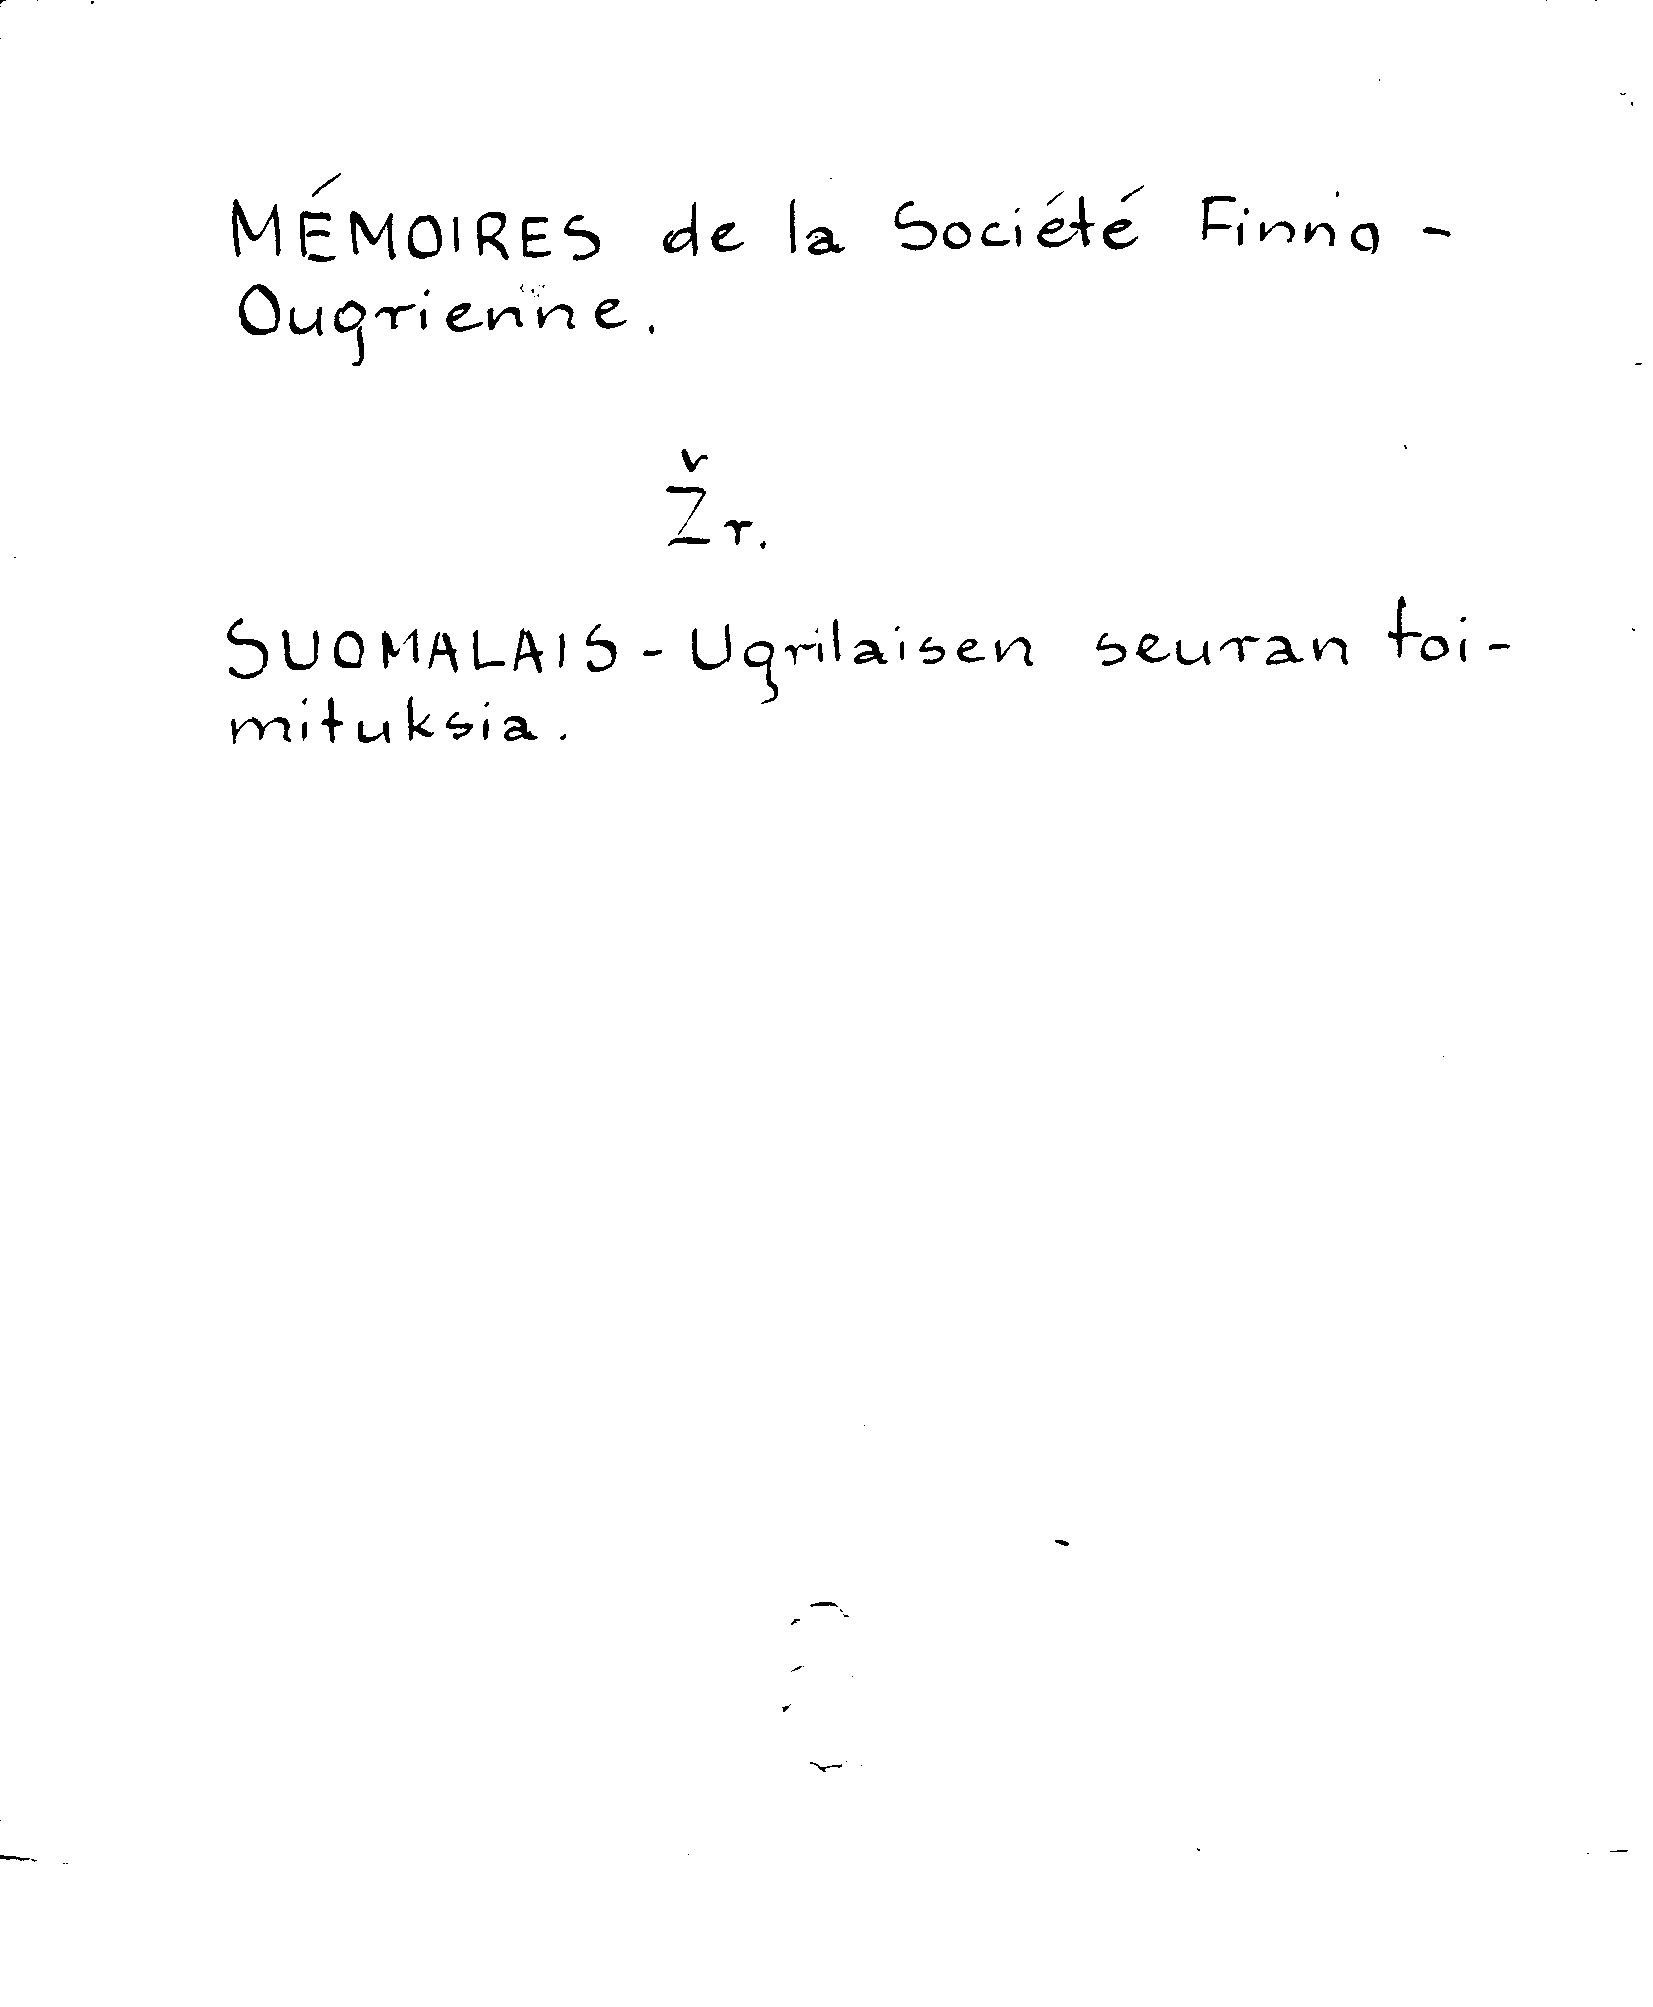 MÉMOIRES de la Société Finno-
Ougrienne.
Žr.
SUOMALAIS-Ugrilaisen seuran toi-
mituksia.